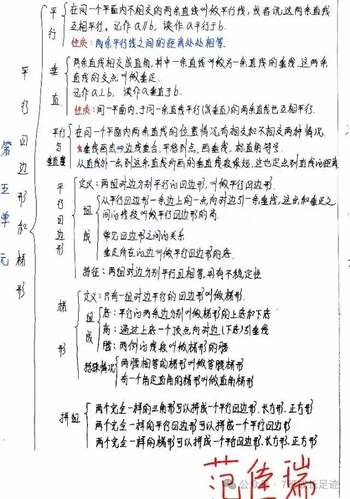 第五单元
平行四边形和梯形
平行
在同一个平面内不相交的两条直线叫做平行线,或者说这两条直线
互相平行。记作a∥b,读作a平行于b.
性质:两条平行线之间的距离处处相等.
垂直
两条直线相交成直角,其中一条直线叫做另一条直线的垂线,这两条直
线的交点叫做垂足.
记作a⊥b,读作a垂直于b.
性质:同一平面内,
一条直线平行(或垂直)的两条直线也互相平行.
平行与
在同一个平面内两条直线的位置情况,有相交和不相交两种情况.
从直线外一点到这条直线所画的垂直线段最短,这也是点到直线的距离
平行四边形
定义:两组对边分别平行的四边形,叫做平行四边形.
组成
从平行四边形一条边上的一点向对边引一条垂线,这点和垂足之
间的线段叫做平行四边形的高.
四边形之间的关系
垂足所在的边叫做平行四边形的底.
特征:两组对边分别平行且相等,具有不稳定性
梯形
定义:只有一组对边平行的四边形叫做梯形.
组成
底:平行的两条边分别叫做梯形的上底和下底
高:通过上底一个顶点向对边(下底)引垂线
腰:两侧的线段叫做梯形的腰
特殊情况
两腰相等的梯形叫做等腰梯形
有一个角是直角的梯形叫做直角梯形
拼组
两个完全一样的三角形可以拼成一个平行四边形、长方形、正方形
两个完全一样的平行四边形可以拼成一个平行四边形
两个完全一样的梯形可以拼成一个平行四边形、长方形、正方形
范佳瑞
公众号